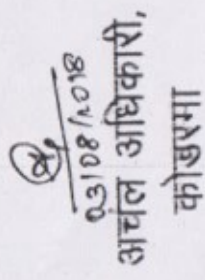 23/08/2018
अचंल अधिकारी,
कोडरमा